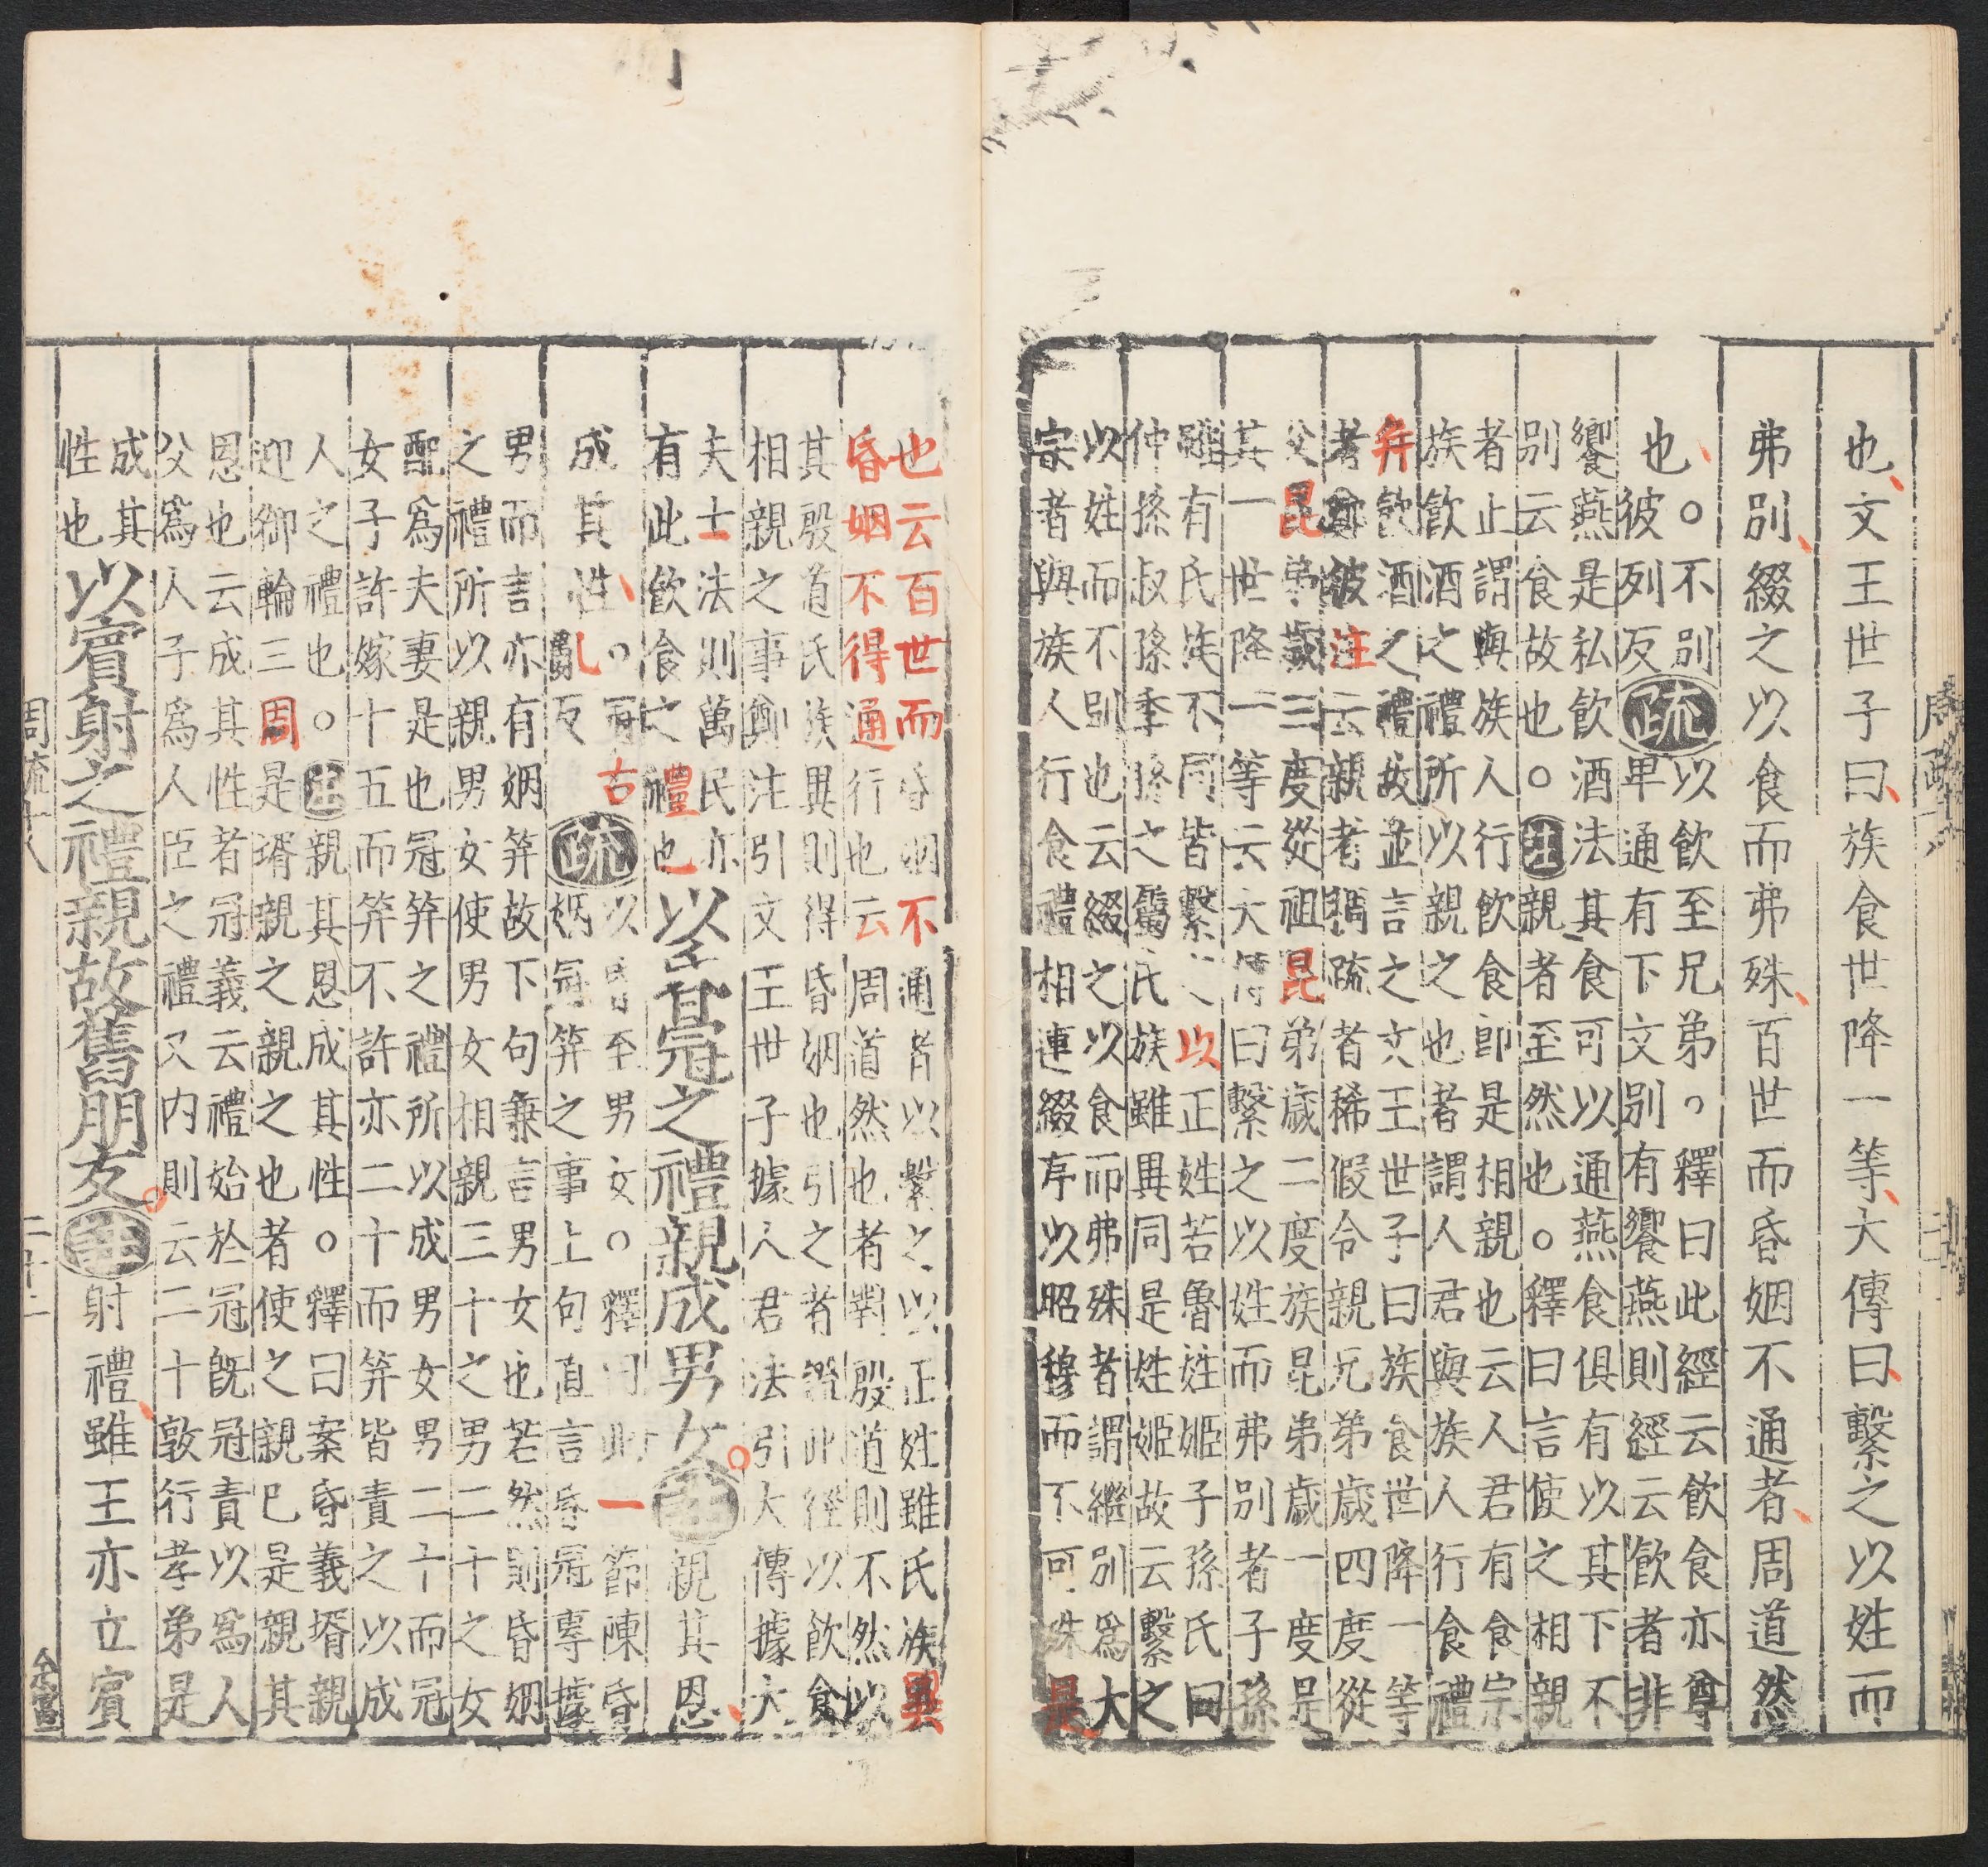 也文王世子曰族食世降一等大傳曰繫之以姓而
弗別綴之以食而弗殊百世而昏姻不通者周道然
也。不別
彼列反
疏
以飲至兄弟。釋曰此經云飲食亦尊
卑通有下文別有饗燕則經云飲者非
饗燕是私飲酒法其食可以通燕食俱有以其下不
別云食故也。注親者至然也。釋曰言使之相親
者止謂與族人行飲食即是相親也云人君有食宗
族飲酒之禮所以親之也者謂人君與族人行食禮
并飲酒之禮故並言之文王世子曰族食世降一等
者彼注云親者稠疏者稀假令親兄弟歲四度從
父昆弟歲三度從祖昆弟歲二度族昆弟歲一度是
其一世降一等云大傳曰繫之以姓而弗別者子孫
雖有氏族不同皆繫之以正姓若魯姓姬子孫氏曰
仲孫叔孫季孫之屬氏族雖異同是姓姬故云繫之
以姓而不別也云綴之以食而弗殊者謂繼別爲大
宗者與族人行食禮相連綴序以昭穆而不可殊是
也云百世而昏姻不通者以繫之以正姓雖氏族異
昏姻不得通行也云周道然也者對殷道則不然以
其殷道氏族異則得昏姻也引之者證此經以飲食
相親之事鄭注引文王世子據人君法引大傳據大
夫士法則萬民亦
有此飲食之禮也
以昏冠之禮親成男女
注
親其恩
成其性
。冠古
亂反
疏
以昏至男女。釋曰此一節陳昏
姻冠笄之事上句直言昏冠專據
男而言亦有姻笄故下句兼言男女也若然則昏姻
之禮所以親男女使男女相親三十之男二十之女
配爲夫妻是也冠笄之禮所以成男女男二十而冠
女子許嫁十五而笄不許亦二十而笄皆責之以成
人之禮也。注親其恩成其性。釋曰案昏義壻親
迎御輪三周是壻親之親之也者使之親己是親其
恩也云成其性者冠義云禮始於冠旣冠責以爲人
父爲人子爲人臣之禮又內則云二十敦行孝弟是
成其
性也
以賓射之禮親故舊朋友
注
射禮雖王亦立賓
周疏十八
二十二